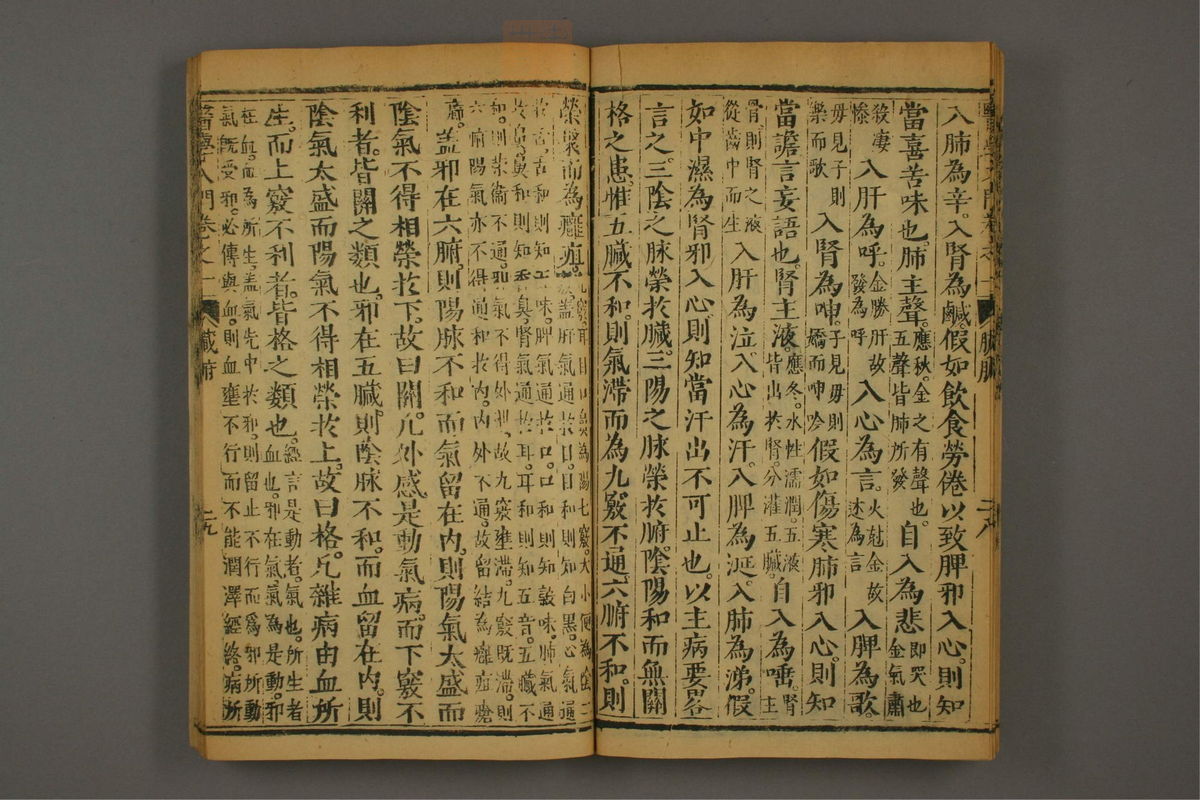 入肺為辛。入腎為鹹。假如飲食勞倦以致脾邪入心。則知
當喜苦味也。肺主聲。應秋。金之有聲也。五聲皆肺所發自入為悲即哭也金氣肅
殺凄慘入肝為呼。金勝肝故發為呼入心為言。火尅金故述為言入脾為歌。
毋見子則樂而歌入腎為呻。子見毋則嬌而呻吟假如傷寒肺邪入心。則知
當譫言妄語也。腎主液。應冬。水性濡潤。五液皆出於腎。分灌五臟。自入為唾。腎主
骨則腎之液從齒中而生入肝為泣。入心為汗。入脾為涎。入肺為涕。假
如中濕為腎邪入心。則知當汗出不可止也。以主病要畧
言之。三陰之脉榮於臟。三陽之脉榮於腑。陰陽和而無關
格之患。惟五臟不和。則氣滯而為九竅不通。六腑不和。則
醫學入門卷之一 臟腑 二九
榮聚而為癰疽。九竅耳目口鼻為陽七竅。大小便為陰二蓋肝氣通於目。目和則知白黑。心氣通
於舌。舌和則知五味。脾氣通於口。口和則知穀味。肺氣通於鼻。鼻和則知香臭。腎氣通於耳。耳和則知五音。五臟不
和。則榮衛不通。邪氣不得外泄。故九竅壅滯。九竅既滯。則六腑陽氣亦不得通和於內。內外不通。故留結為癰疽瘡
癤。蓋邪在六腑。則陽脉不和而氣留在內。則陽氣太盛而
陰氣不得相榮於下。故曰關。凡外感是動氣病。而下竅不
利者。皆關之類也。邪在五臟。則陰脉不和。而血留在內。則
陰氣太盛而陽氣不得相榮於上。故曰格。凡雜病由血所
生。而上竅不利者。皆格之類也。經言是動者。氣也。所生者血也。邪在氣。氣為是動。邪
在血。血為所生。蓋氣先中於邪。則留止不行而為邪所動氣既受邪。必傳與血。則血壅不行而不能潤澤經絡。病所
醫學入門卷之一 臟腑